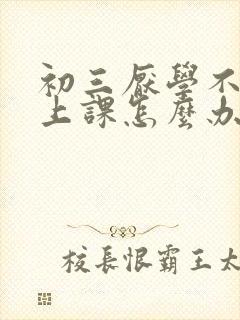 初三厭學不
上課怎麼办
校長恨霸王太